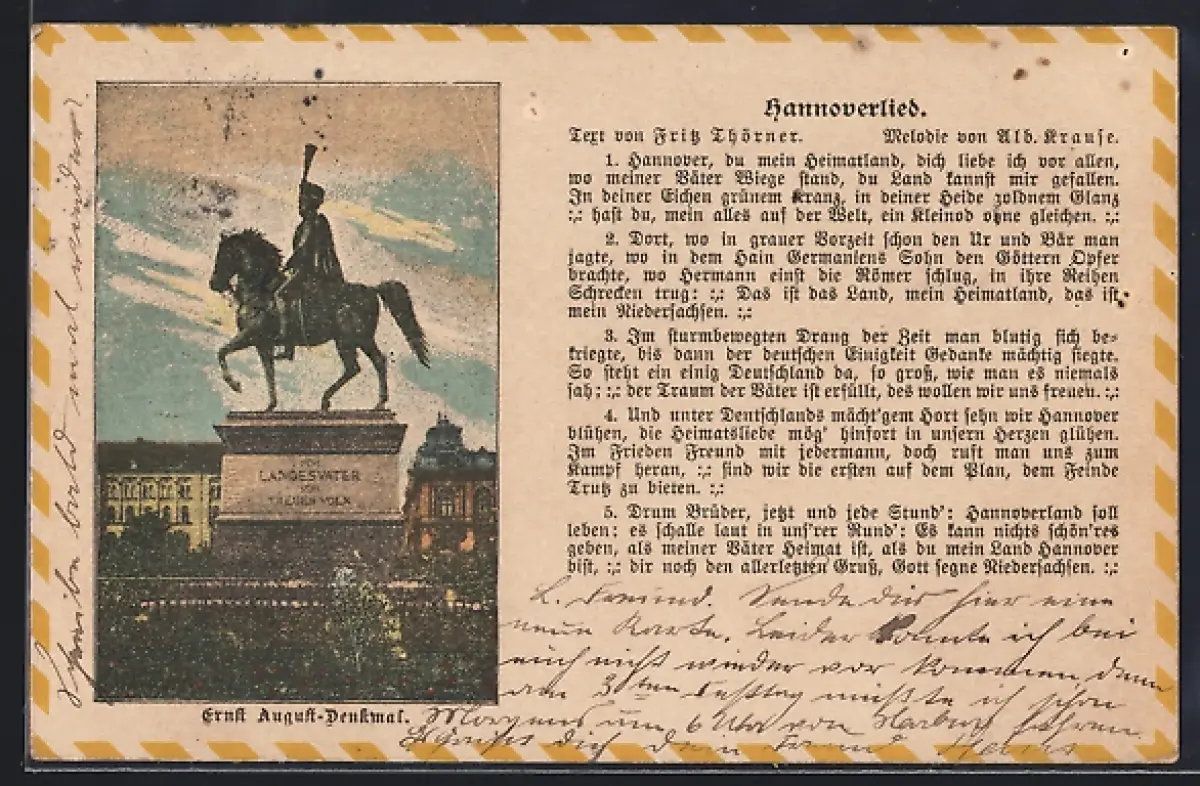 Hannoverlied.
Text von Fritz Thörner. Melodie von Alb. Krause.
1. Hannover, du mein Heimatland, dich liebe ich vor allen,
wo meiner Väter Wiege stand, du Land kannst mir gefallen.
In deiner Eichen grünem Kranz, in deiner Heide goldnem Glanz
:,: hast du, mein alles auf der Welt, ein Kleinod ohne gleichen. :,:
2. Dort, wo in grauer Vorzeit schon den Ur und Bär man
jagte, wo in dem Hain Germaniens Sohn den Göttern Opfer
brachte, wo Hermann einst die Römer schlug, in ihre Reihen
Schrecken trug: :,: Das ist das Land, mein Heimatland, das ist
mein Niedersachsen. :,:
3. Im sturmbewegten Drang der Zeit man blutig sich be-
kriegte, bis dann der deutschen Einigkeit Gedanke mächtig siegte.
So steht ein einig Deutschland da, so groß, wie man es niemals
sah: :,: der Traum der Väter ist erfüllt, des wollen wir uns freuen. :,:
4. Und unter Deutschlands mächt'gem Hort sehn wir Hannover
blühen, die Heimatsliebe mög' hinfort in unsern Herzen glühen.
Im Frieden Freund mit jedermann, doch ruft man uns zum
Kampf heran, :,: sind wir die ersten auf dem Plan, dem Feinde
Trutz zu bieten. :,:
5. Drum Brüder, jetzt und jede Stund': Hannoverland soll
leben; es schalle laut in uns'rer Rund': Es kann nichts schön'res
geben, als meiner Väter Heimat ist, als du mein Land Hannover
bist, :,: dir noch den allerletzten Gruß, Gott segne Niedersachsen. :,:
L. Freund. Sende dir hier eine
neue Karte. Leider konnte ich bei
euch nicht wieder vor kommen, denn
am 3ten Festtag mußte ich schon
Morgens um 6 Uhr von Harburg fahren.
Es grüßt dich dein Freund
Schreibe bald mal wieder.
DEM
LANDESVATER
SEIN
TREUES VOLK
Ernst August-Denkmal.